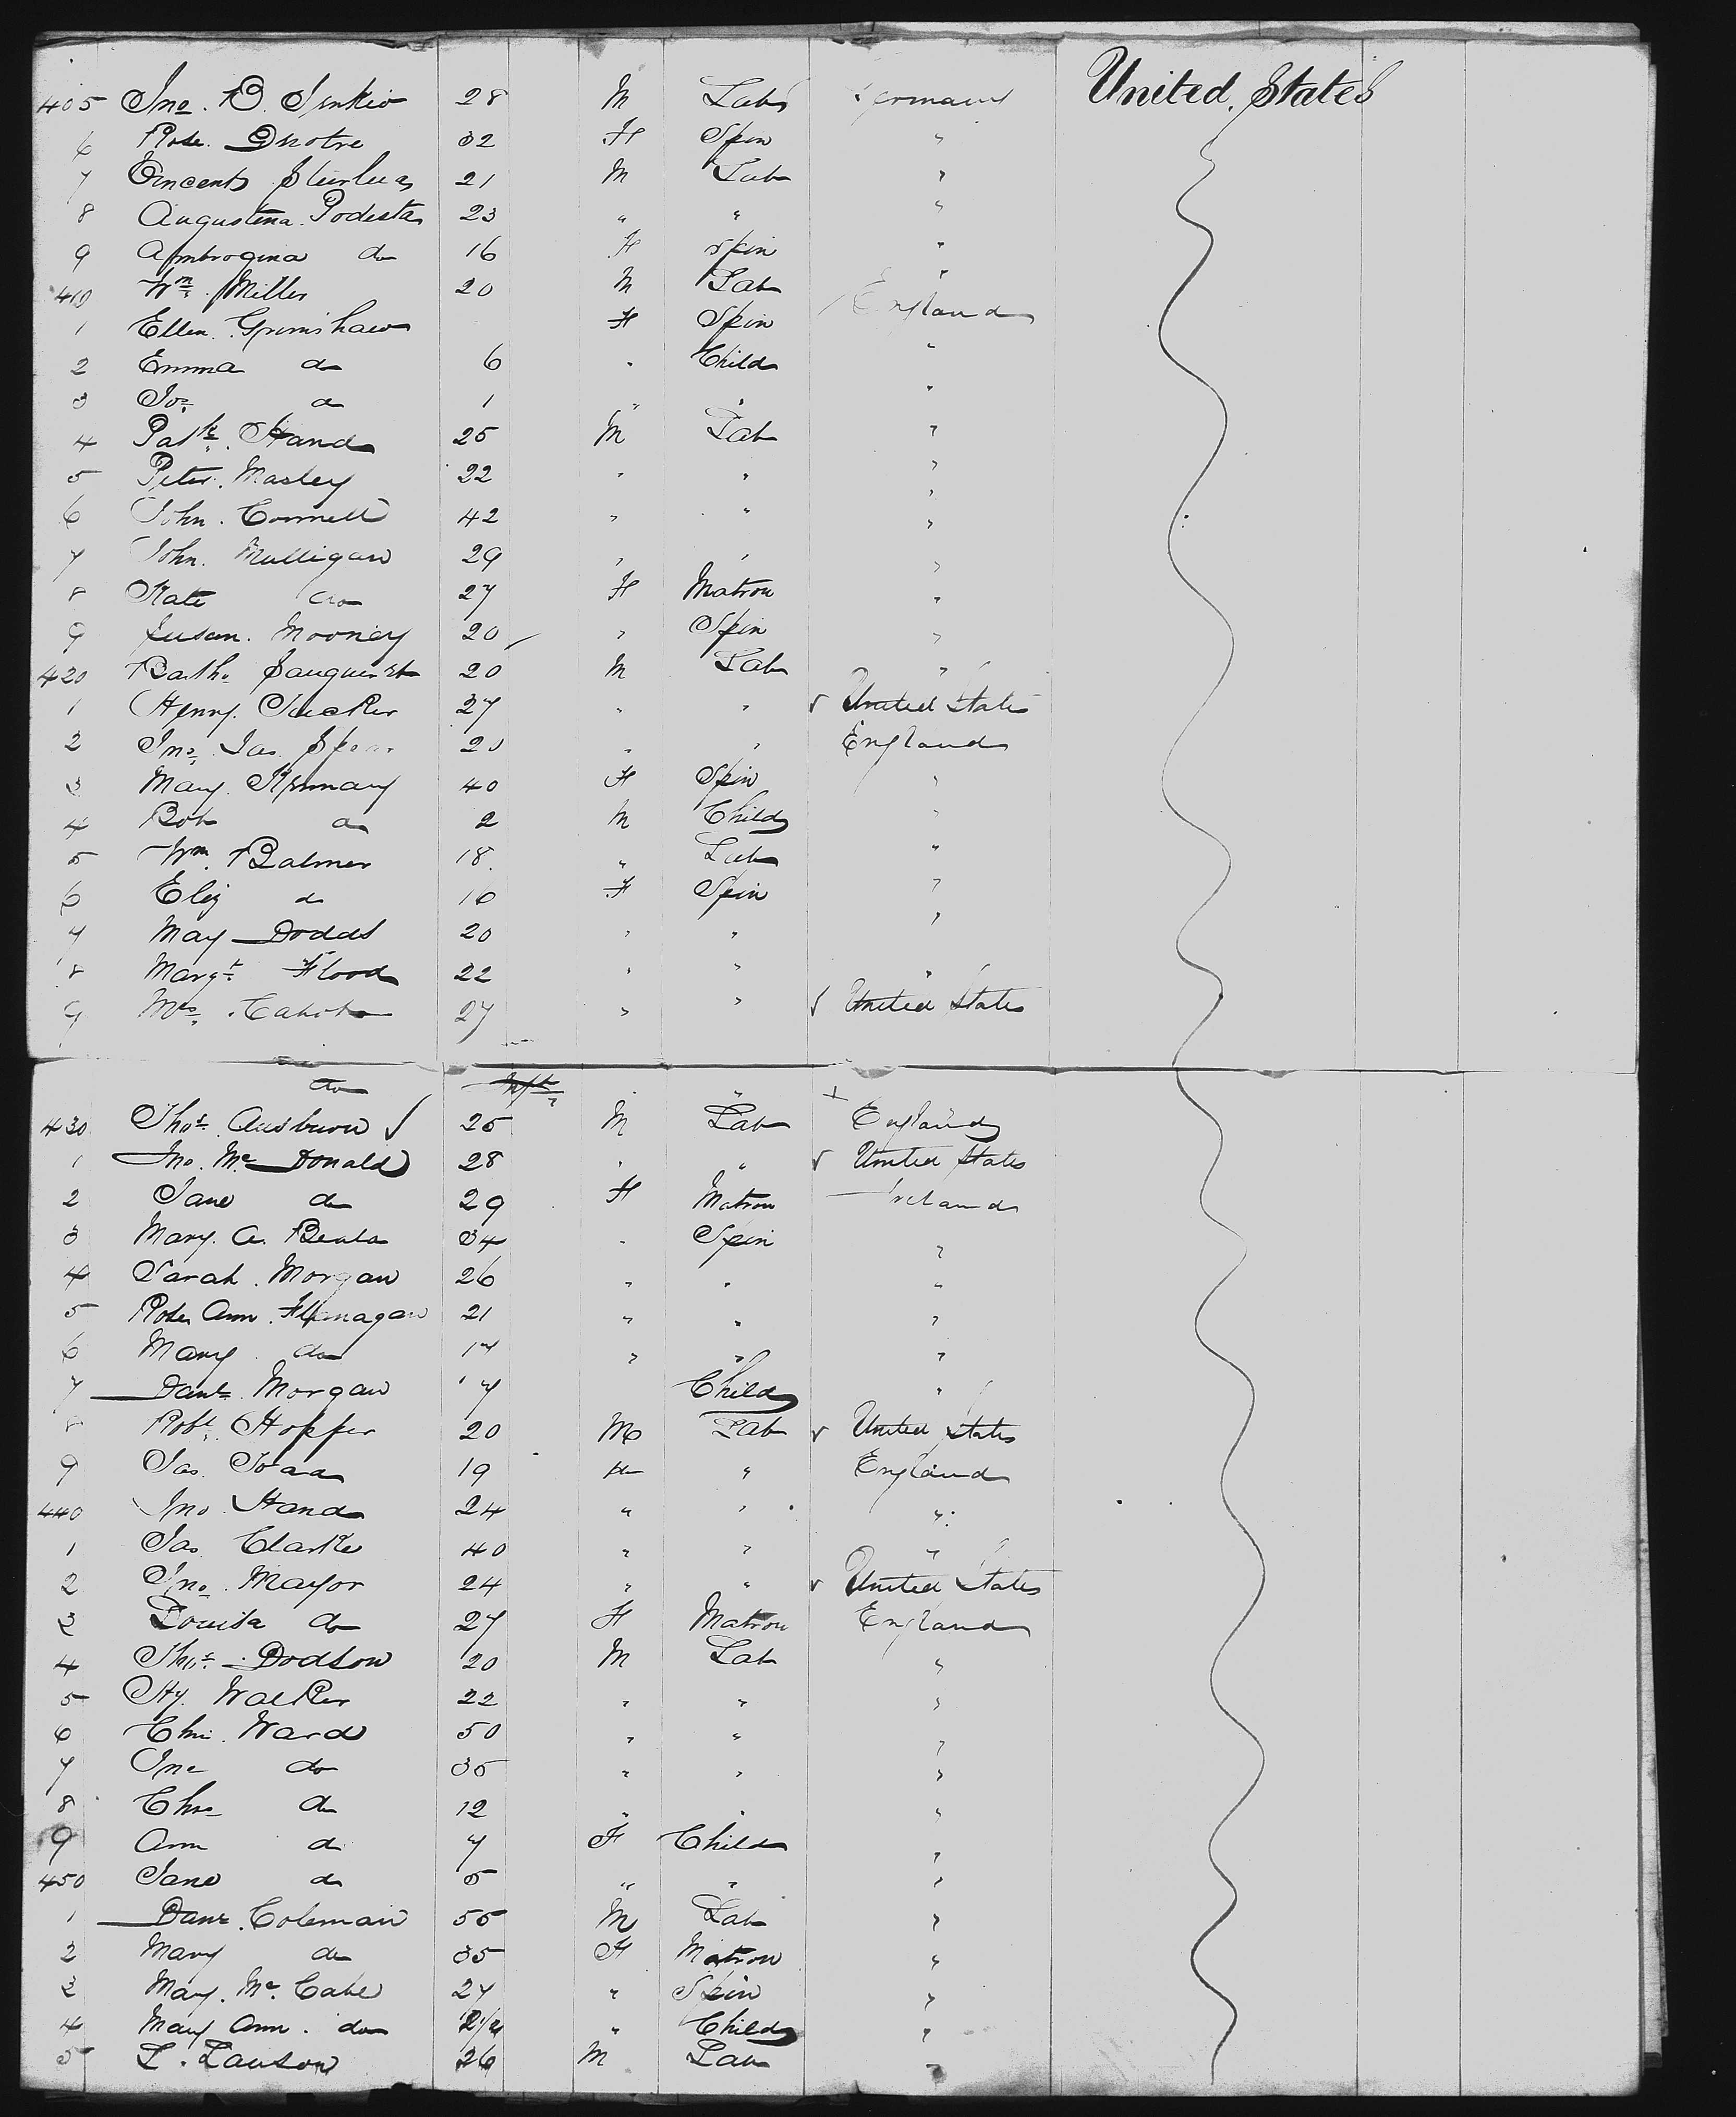 405 Jno. B. 28 M Lab Germany United States
6 Rose 32 F Spin "
7 Vincent 21 M Lab "
8 Augustina Podesta 23 " " "
9 Ambrogina do 16 F Spin "
410 Wm. Miller 20 M Lab "
1 Ellen Grimshaw F Spin England
2 Emma do 6 " Child "
3 Jos. do 1 " " "
4 Patk. Hand 25 M Lab "
5 Peter Masley 22 " " "
6 John Connell 42 " " "
7 John Mulligan 29 " " "
8 Kate do 27 F Matron "
9 Susan Mooney 20 " Spin "
420 20 M Lab "
1 Henry Tucker 37 " " United States
2 Jno. Jas. 20 " " England
3 Mary 40 F Spin "
4 Rob do 2 M Child "
5 Wm. Balmer 18 " Lab "
6 Eliz do 16 F Spin "
7 May Dodds 20 " " "
8 Margt. Flood 22 " " "
9 Mrs. Cabot 27 " " United States
do Inft " "
430 Thos. Ausburn 25 M Lab England
1 Jno. McDonald 28 " " United States
2 Jane do 29 F Matron Ireland
3 Mary A. 34 " Spin "
4 Sarah Morgan 26 " " "
5 Rose Ann Flanagan 21 " " "
6 Mary do 17 " " "
7 Danl. Morgan 7 Child "
8 Robt. Hopper 20 M Lab United States
9 Jas. 19 " England
440 Jno Hand 24 " " "
1 Jas Clarke 40 " " "
2 Jno. Mayor 24 " " United States
3 Louisa do 27 F Matron England
4 Thos. Dodson 20 M Lab "
5 Hy. Walker 22 " " "
6 Ward 50 " " "
7 Jno do 35 " " "
8 Chs do 12 " " "
9 Ann do 7 F Child "
450 Jane do 5 " " "
1 Danl. Coleman 55 M Lab "
2 Mary do 35 F Matron "
3 May McCabe 27 " Spin "
4 May Ann do " Child "
5 L. Lawson 26 M Lab "